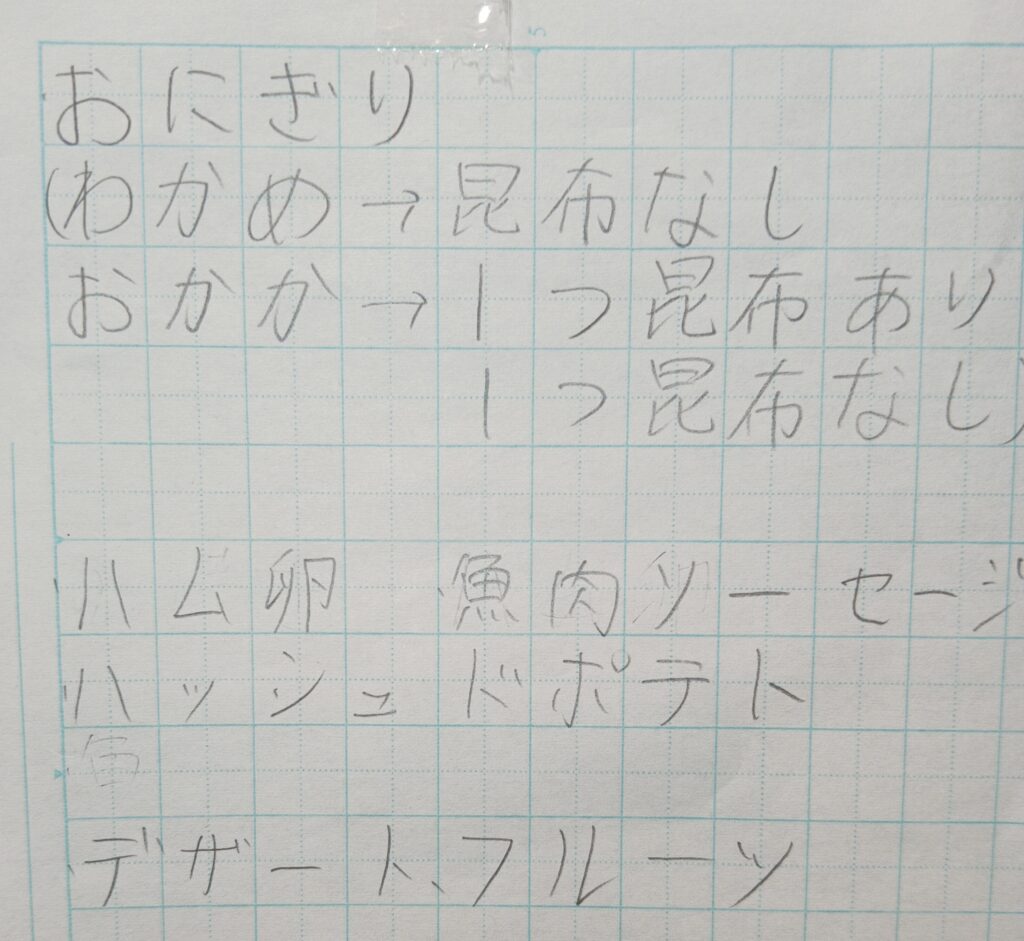 おにぎり
(わかめ→昆布なし
おかか→1つ昆布あり
1つ昆布なし)
・ハム卵 ・魚肉ソーセージ
・ハッシュドポテト
・デザート、フルーツ